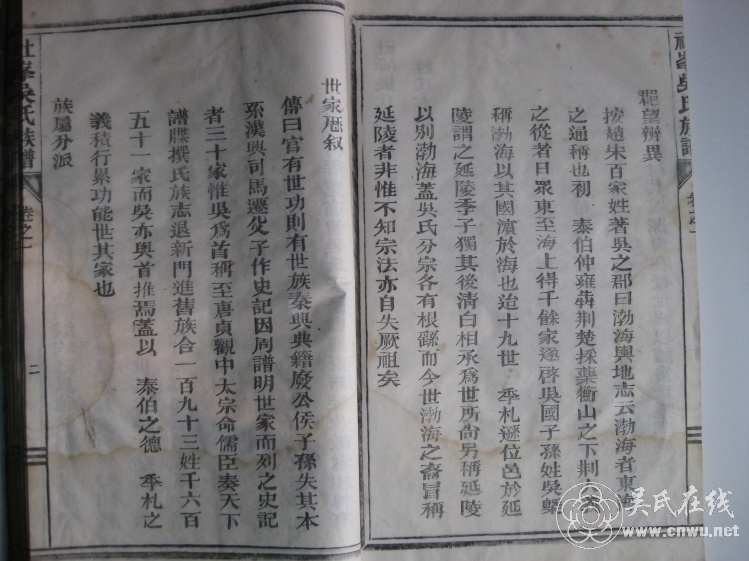 郡望辨異
按遠宋百家姓著吳之郡曰渤海輿地志云渤海者東海
之通稱也初 泰伯仲雍犇荆楚採藥衡山之下荆
之從者日眾東至海上得千餘家遂啓吳國子孫姓吳槩
稱渤海以其國濵於海也迨十九世 季札遜位邑於延
陵謂之延陵季子獨其後清白相承爲世所尙另稱延陵
以别渤海蓋吳氏分宗各有根繇而今世渤海之裔冒稱
延陵者非惟不知宗法亦自失厥祖矣
世家歴叙
傳曰官有世功則有世族秦興典籍廢公侯子孫失其本
系漢興司馬遷父子作史記因周譜明世家而列之史記
者三十家惟吳爲首稱至唐貞觀中太宗命儒臣奏天下
譜牒撰氏族志退新門進舊族合一百九十三姓千六百
五十一家而吳亦與首推焉蓋以 泰伯之德 季札之
義積行累功能世其家也
族屬分派
吳氏族譜
卷之一
二
吳氏族譜
卷之一
吳氏在线
www.cnwu.net